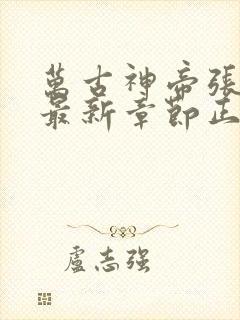 萬古神帝張
最新章節正
盧志強